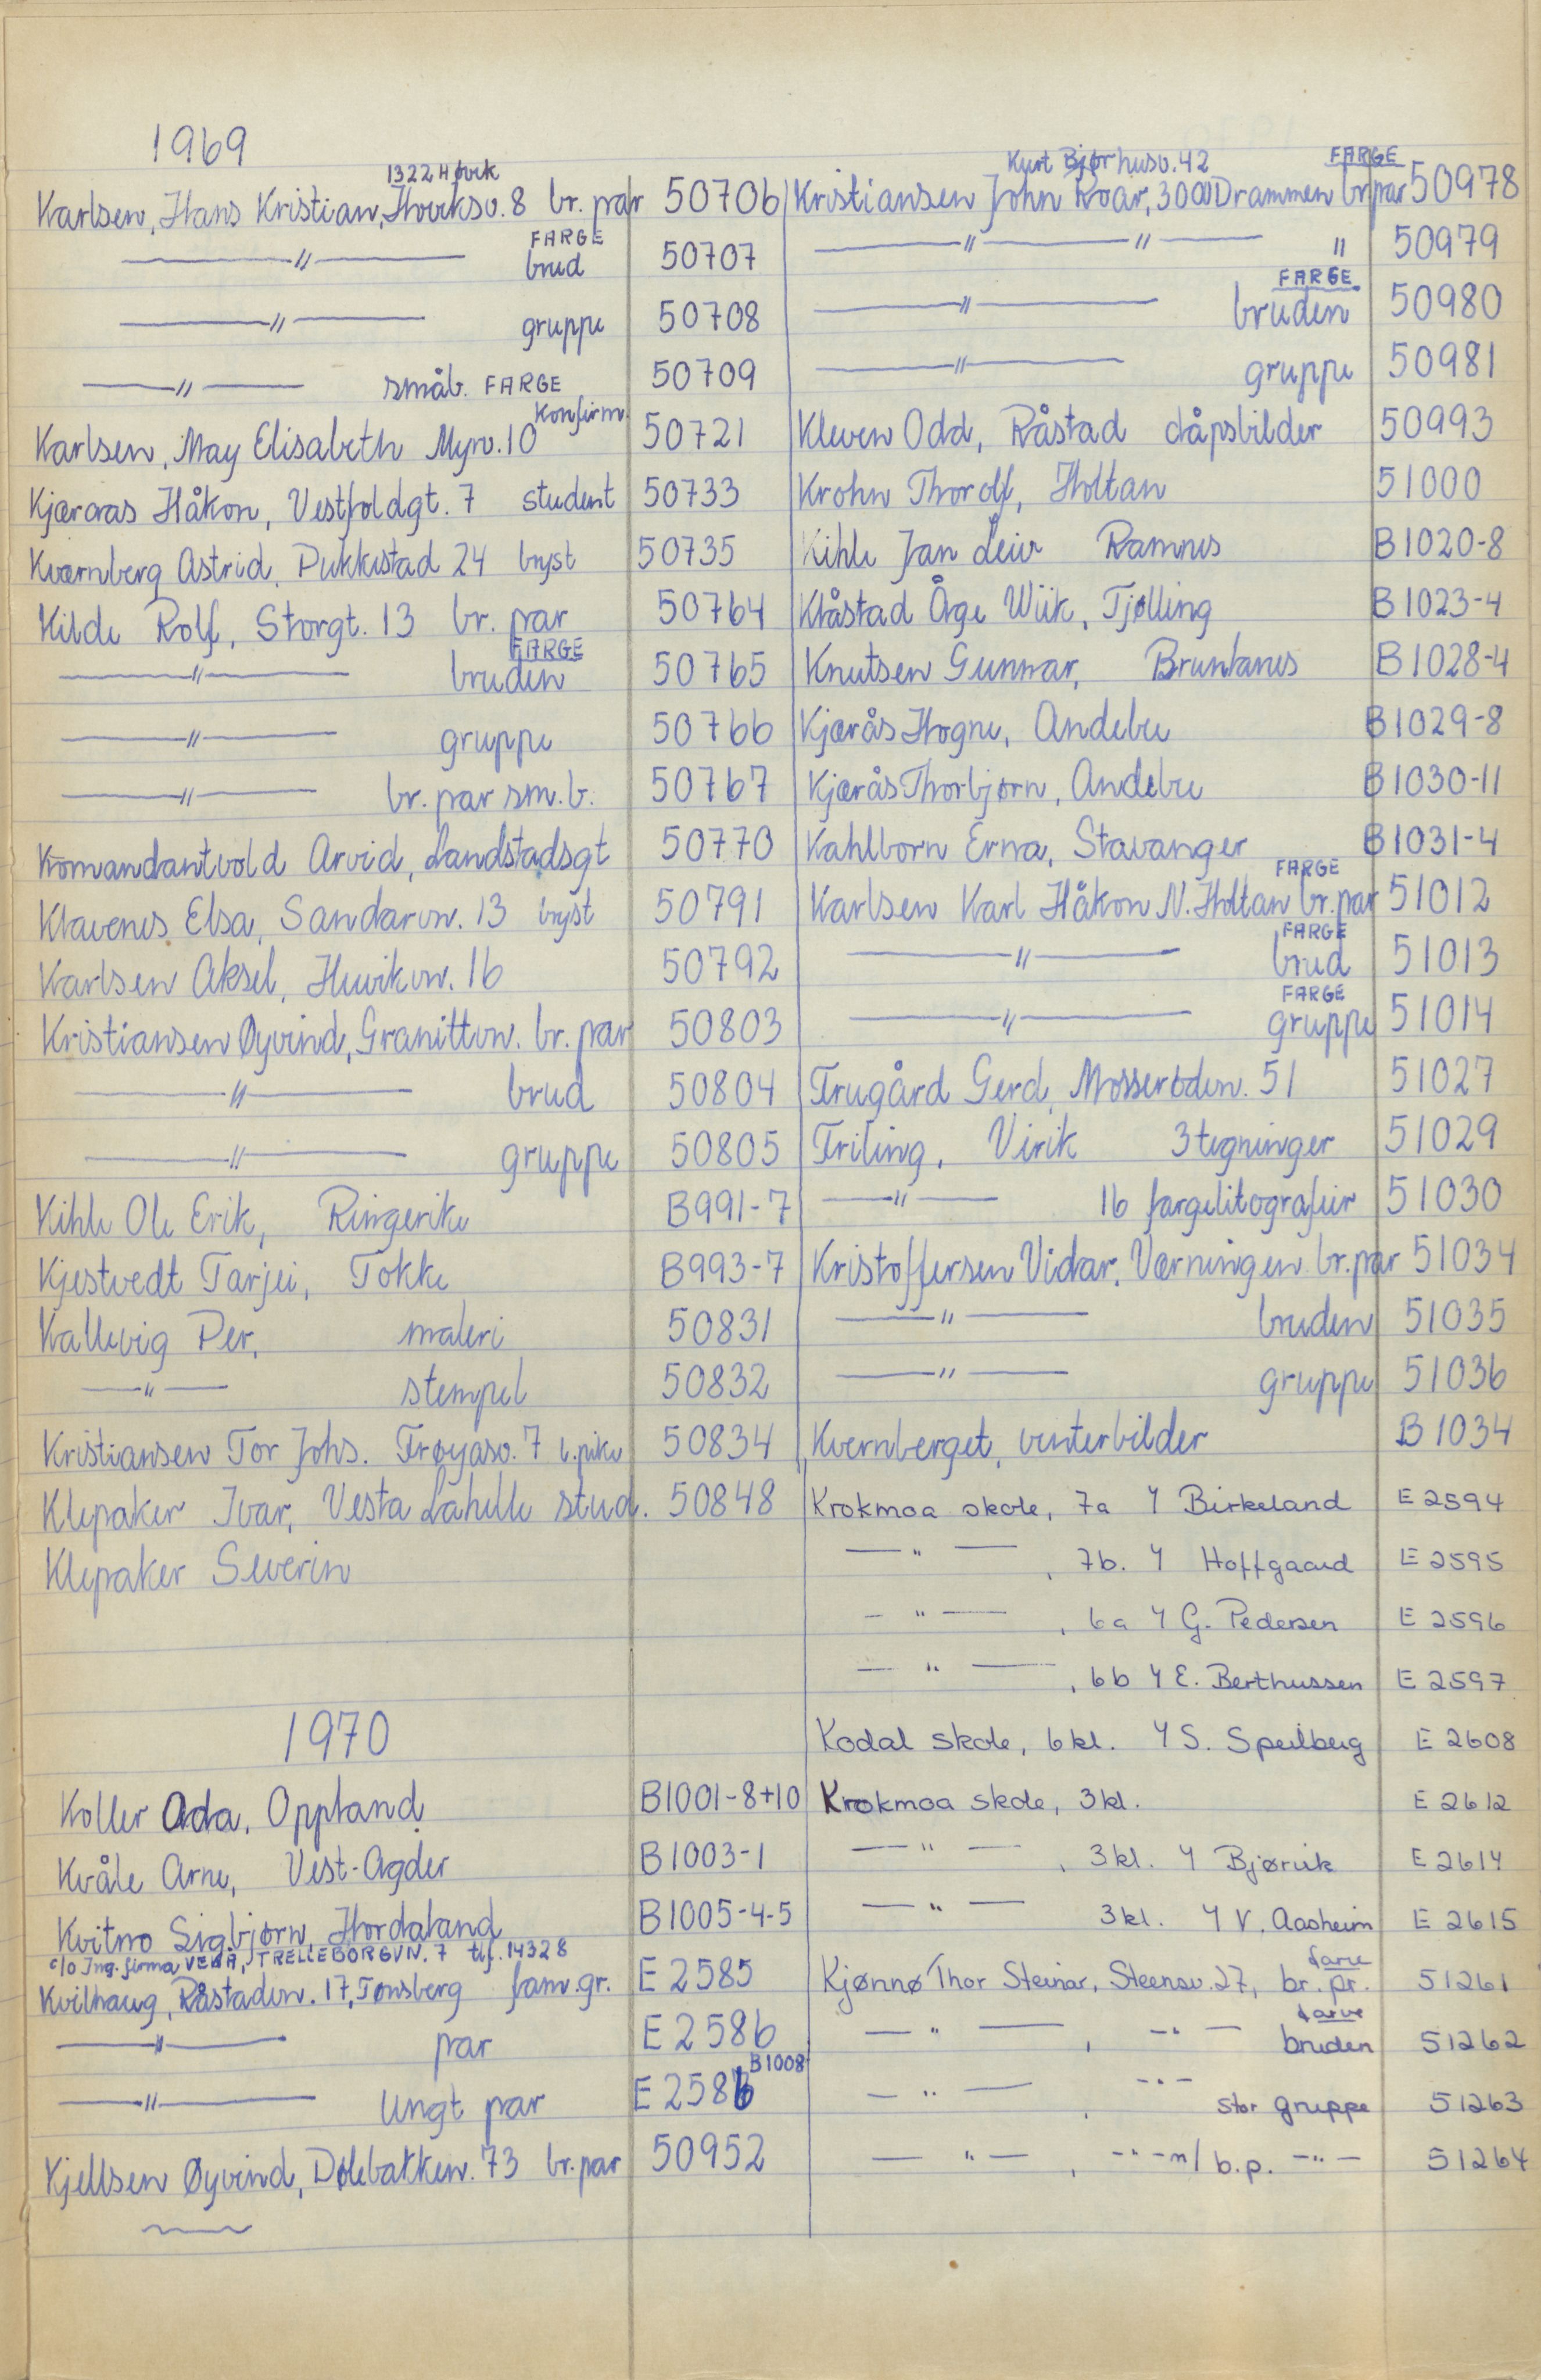 1969
1322 Høvik
Karlsen, Hans Kristian, Høviksv. 8 br. par 50706
FARGE
—〃— brud 50707
—〃— gruppe 50708
—〃— småb. FARGE 50709
Konfirm.
Karlsen, May Elisabeth Myrv. 10 50721
Kjæraas Håkon, Vestfoldgt. 7 student 50733
Kværnberg Astrid, Pukkestad 24 bryst 50735
Kilde Rolf, Storgt. 13 br. par 50764
FARGE
—〃— bruden 50765
—〃— gruppe 50766
—〃— br. par sm. b. 50767
Komandantvold Arvid, Landstadsgt 50770
Klavenes Elsa, Sandarvn. 13 bryst 50791
Karlsen Aksel, Huvikvn. 16 50792
Kristiansen Øyvind, Granittvn. br. par 50803
—〃— brud 50804
—〃— gruppe 50805
Kihle Ole Erik, Ringerike B991-7
Kjestvedt Tarjei, Tokke B993-7
Kallevig Per, maleri 50831
—〃— stempel 50832
Kristiansen Tor Johs. Frøyasv. 7 l. pike 50834
Klepaker Ivar, Vesta Lahelle stud. 50848
Klepaker Severin
1970
Koller Ada, Oppland B1001-8+10
Kvåle Arne, Vest-Agder B1003-1
Kvitno Sigbjørn, Hordaland B1005-4-5
c/o Ing. firma VEHA, TRELLEBORGVN. 7 tlf. 14328
Kvilhaug, Råstadvn. 17, Tønsberg fam. gr. E 2585
—〃— par E 2586
B1008
—〃— ungt par E 2586
Kjellsen Øyvind, Dølebakken. 73 br. par 50952
Kurt Bjørhusv. 42 FARGE
Kristiansen John Roar, 3000 Drammen br par 50978
—〃— —〃— 〃 50979
FARGE
—〃— bruden 50980
—〃— gruppe 50981
Kleven Odd, Råstad dåpsbilder 50993
Krohn Thorolf, Holtan 51000
Kihle Jan Leiv Ramnes B1020-8
Klåstad Åge Wiik, Tjølling B1023-4
Knutsen Gunnar, Brunlanes B1028-4
Kjærås Hogne, Andebu B1029-8
Kjærås Thorbjørn, Andebu B1030-11
Kahlborn Erna, Stavanger B1031-4
FARGE
Karlsen Karl Håkon N. Holtan br. par 51012
FARGE
—〃— brud 51013
FARGE
—〃— gruppe 51014
Krugård Gerd, Mosserødvn. 51 51027
Kriling, Virik 3 tegninger 51029
—〃— 16 fargelitografier 51030
Kristoffersen Vidar,Værningen br. par 51034
—〃— bruden 51035
—〃— gruppe 51036
Kvernberget, vinterbilder B 1034
Krokmoa skole, 7a Y Birkeland E 2594
—〃—, 7b. Y Hoffgaard E 2595
—〃—, 6a Y G. Pedersen E 2596
—〃—, 6b Y E. Berthussen E 2597
Kodal skole, 6 kl. Y S. Speilberg E 2608
Krokmoa skole, 3 kl. E 2612
—〃—, 3 kl. Y Bjørvik E 2614
—〃— 3 kl. Y V. Aasheim E 2615
farve
Kjønnø Thor Steinar, Steensv. 27, br. pr. 51261
farve
—〃—, —〃— bruden 51262
—〃—, —〃— stor gruppe 51263
—〃—, —〃— m/ b.p. —〃— 51264